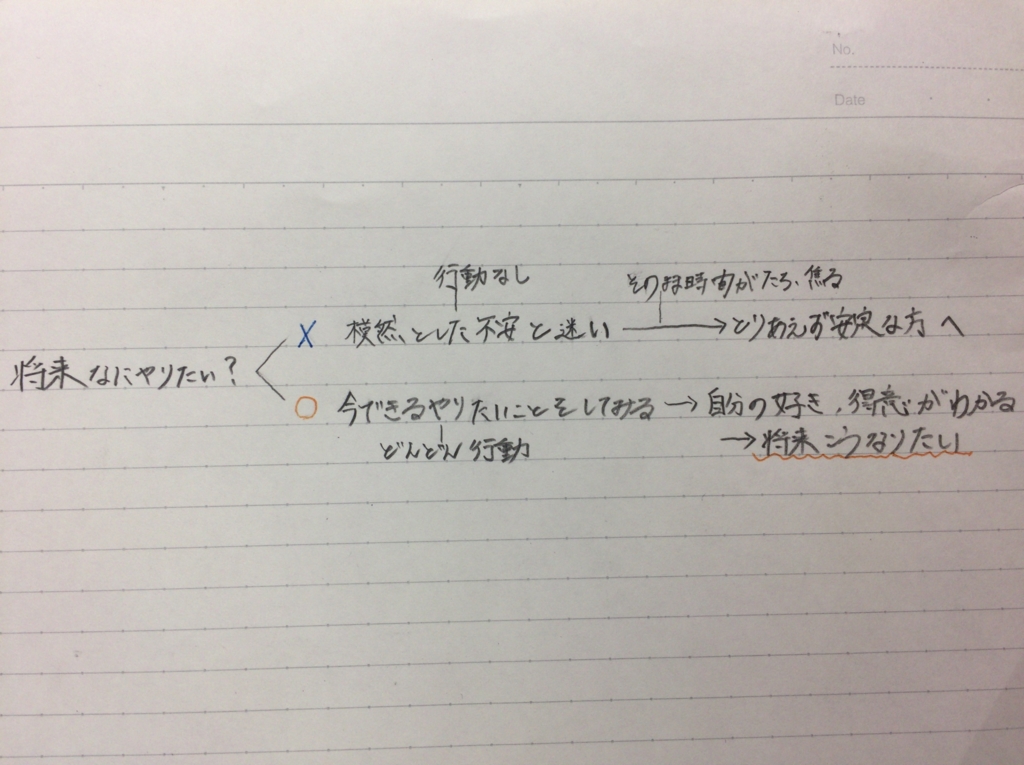 No.
Date
行動なし
そのまま時間がたち、焦る
× 模然とした不安と迷い → とりあえず安定な方へ
将来なにやりたい?
○ 今できるやりたいことをしてみる → 自分の好き、得意がわかる
どんどん行動
→ 将来こうなりたい